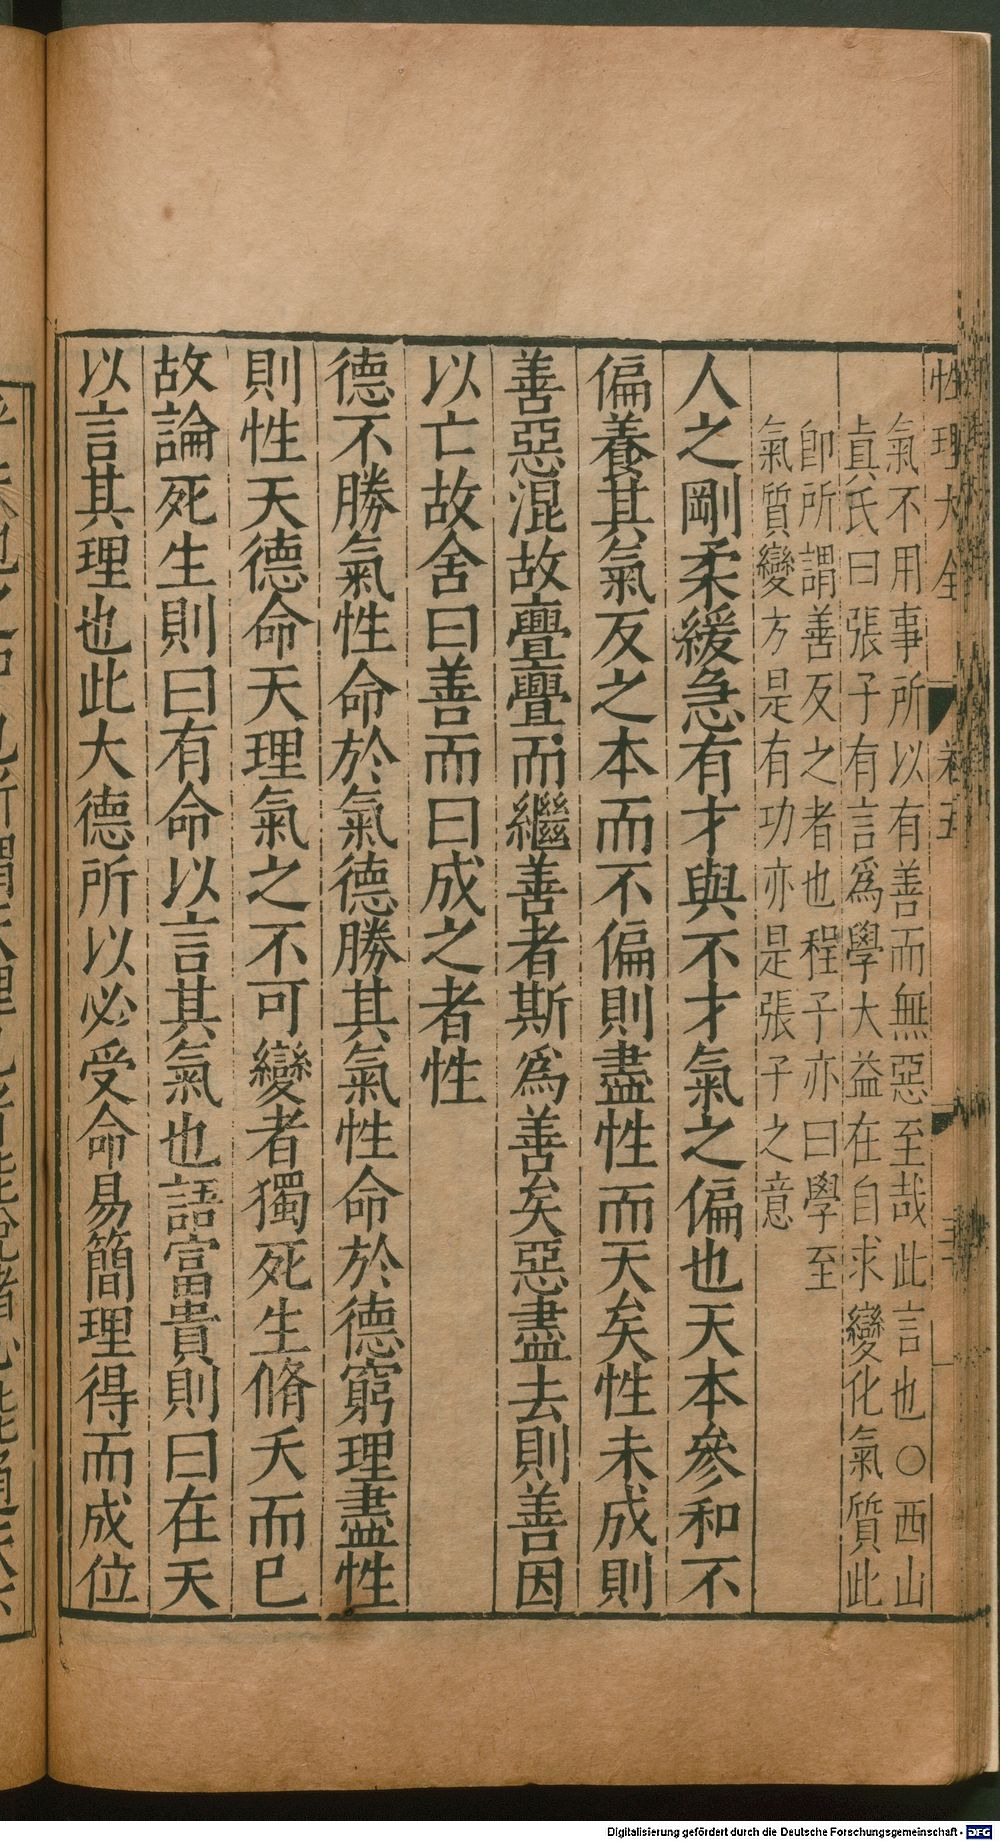 性理大全 卷五
氣不用事所以有善而無惡至哉此言也○西山
真氏曰張子有言爲學大益在自求變化氣質此
卽所謂善反之者也程子亦曰學至
氣質變方是有功亦是張子之意
人之剛柔緩急有才與不才氣之偏也天本參和不
偏養其氣反之本而不偏則盡性而天矣性未成則
善惡混故亹亹而繼善者斯爲善矣惡盡去則善因
以亡故舍曰善而曰成之者性
德不勝氣性命於氣德勝其氣性命於德窮理盡性
則性天德命天理氣之不可變者獨死生脩夭而已
故論死生則曰有命以言其氣也語富貴則曰在天
以言其理也此大德所以必受命易簡理得而成位
Digitalisierung gefördert durch die Deutsche Forschungsgemeinschaft - DFG